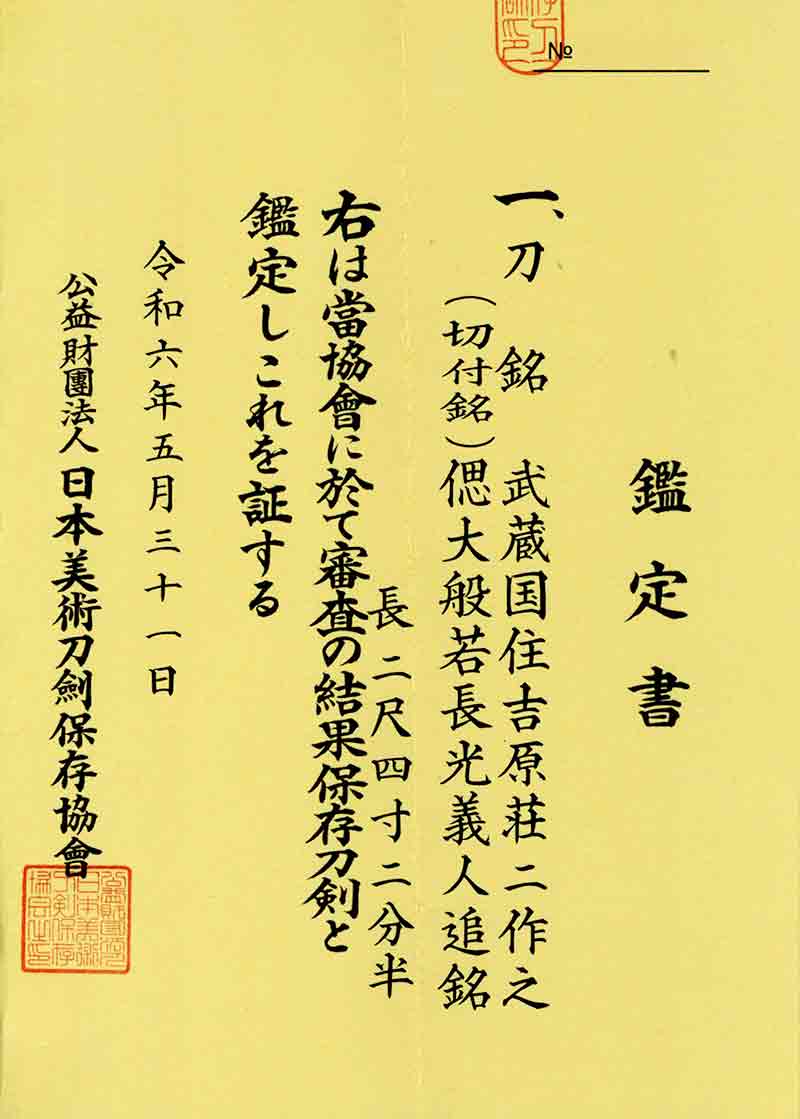 №
鑑定書
一、刀 銘 武蔵国住吉原荘二作之
（切付銘）偲大般若長光義人追銘
長二尺四寸二分半
右は當協會に於て審査の結果保存刀剣と
鑑定しこれを証する
令和六年五月三十一日
公益財團法人日本美術刀劍保存協會